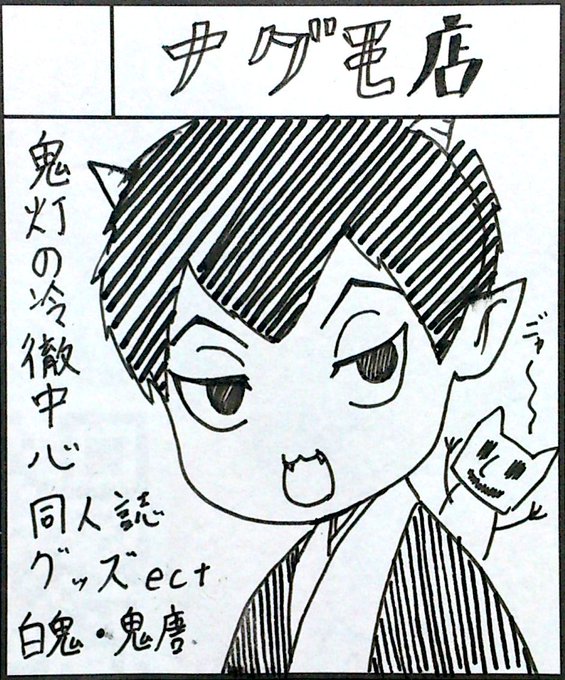 ナグモ店
鬼灯の冷徹中心
同人誌
グッズect
白鬼・鬼唐
ニャ〜